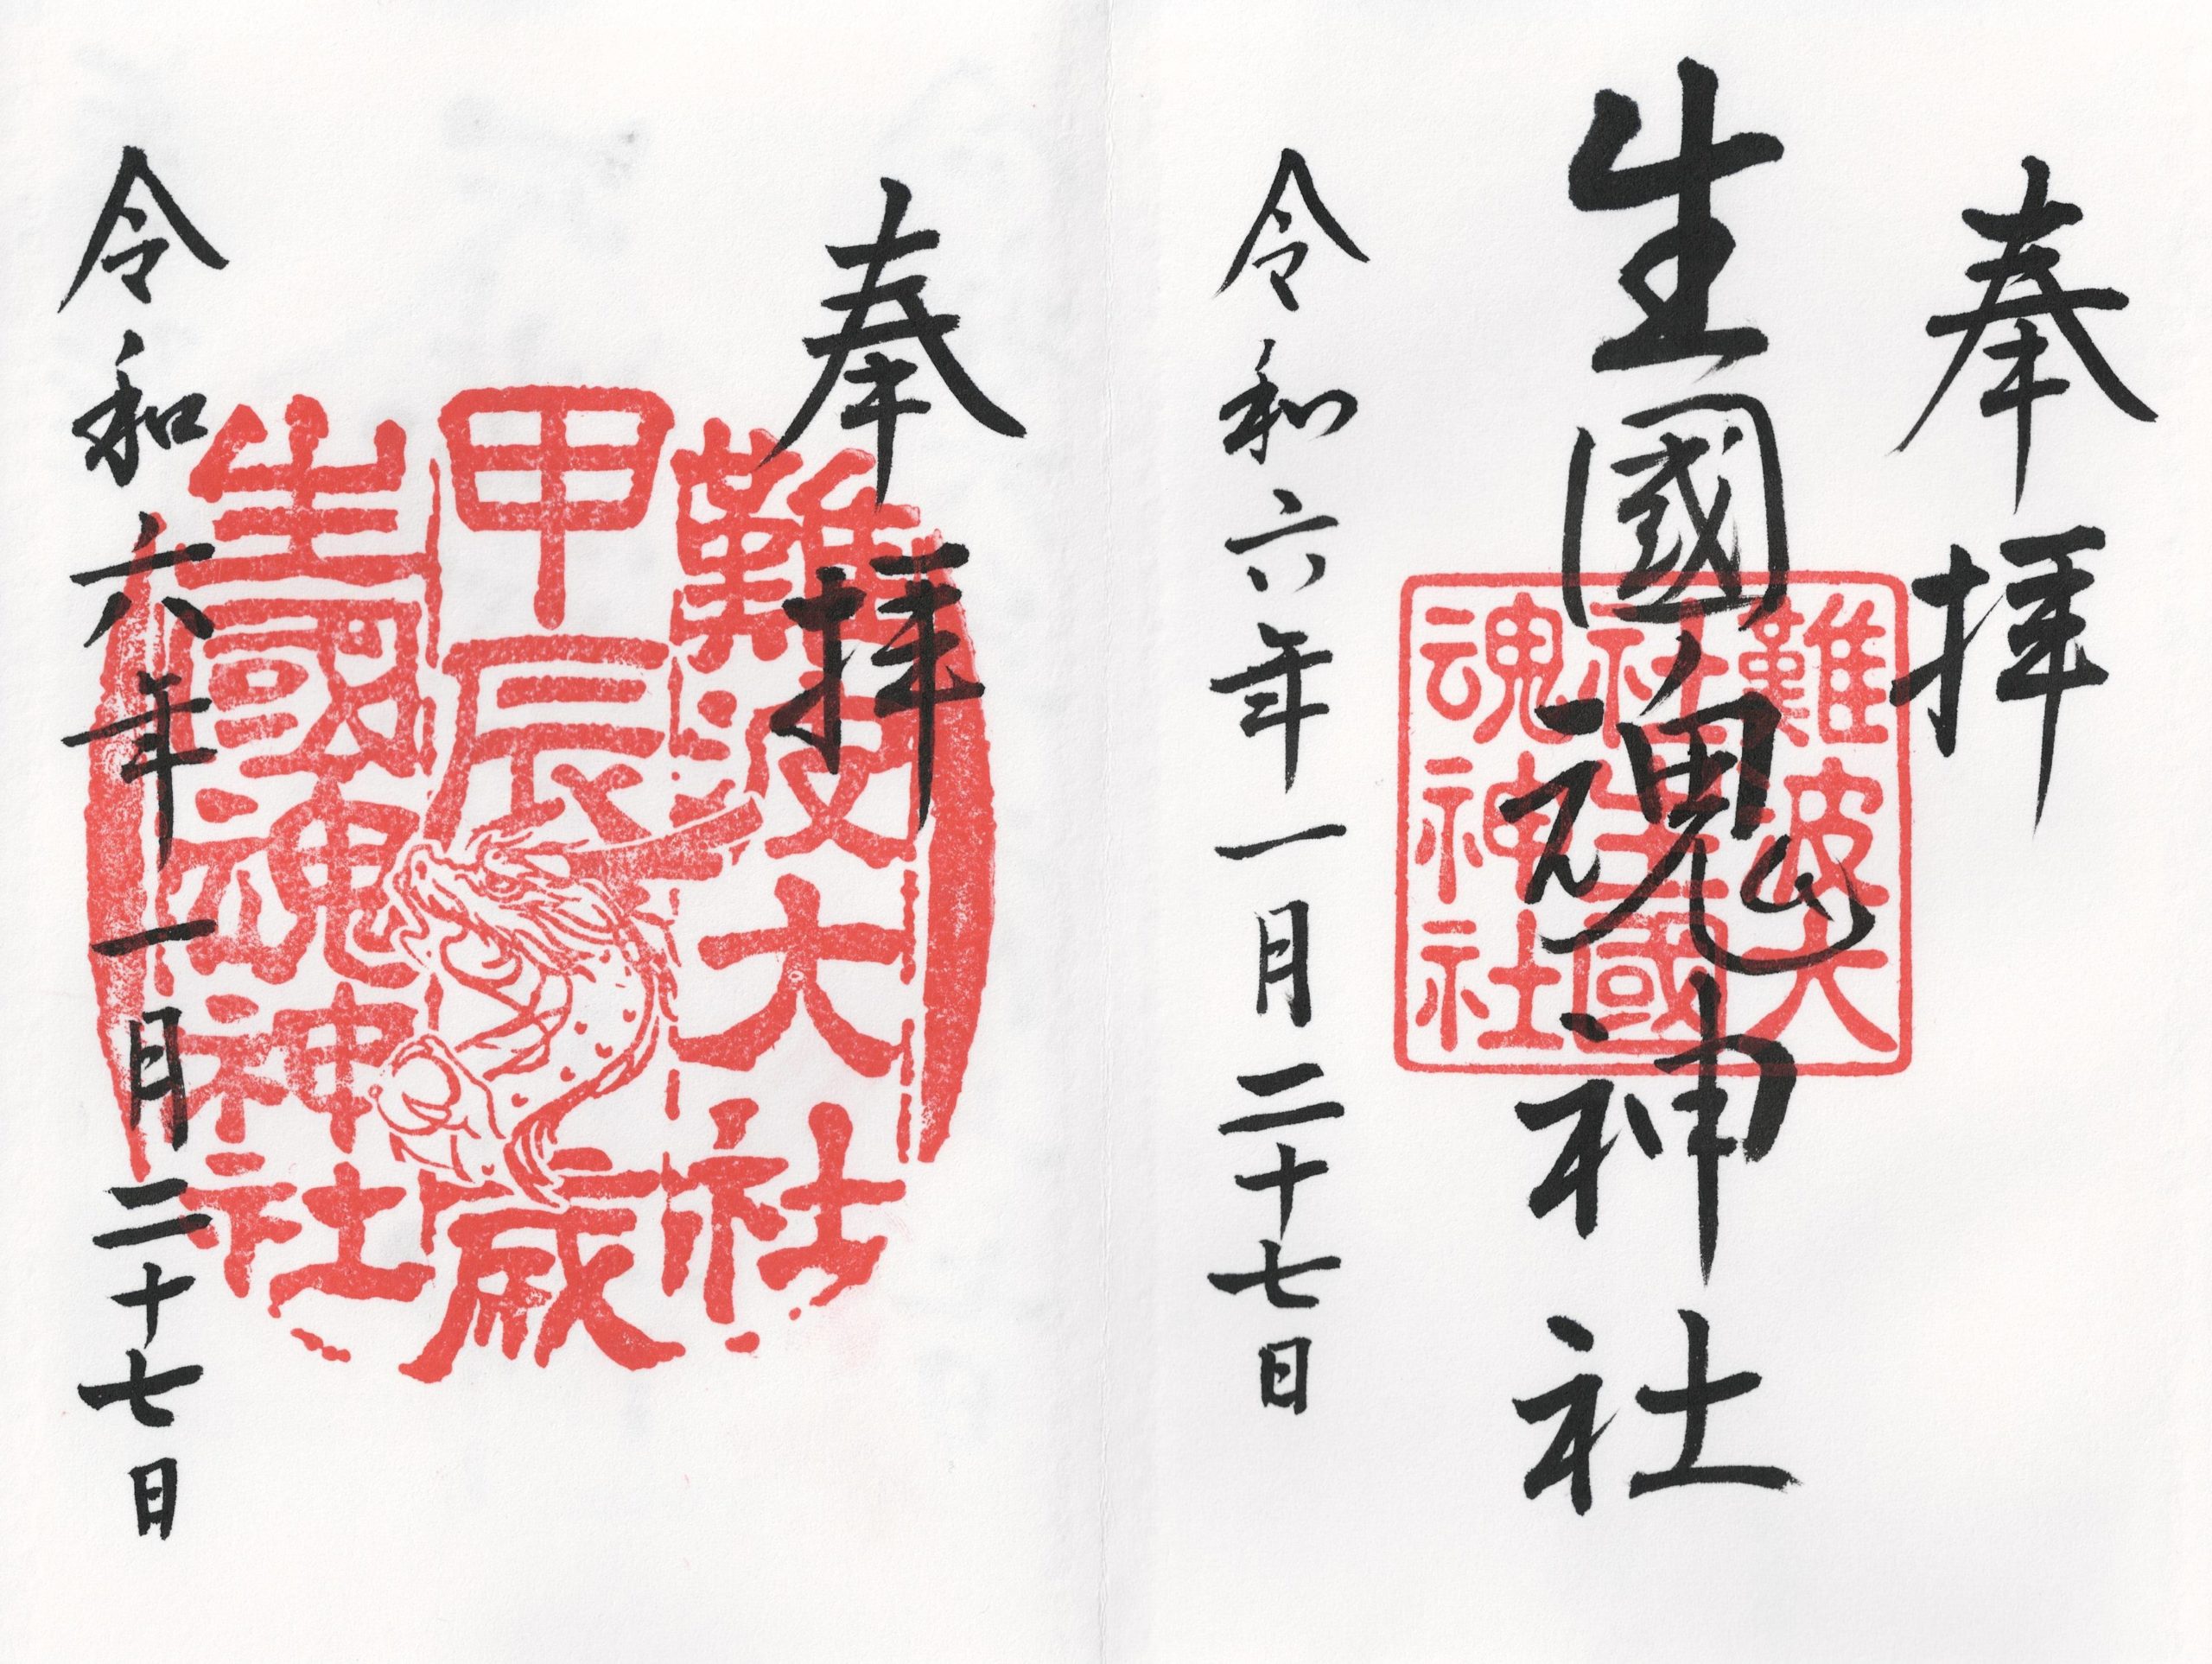 奉拝
生國魂神社
難波大
社生國
魂神社
令和六年一月二十七日
奉拝
難波大社
甲辰歳
生國魂神社
令和六年一月二十七日